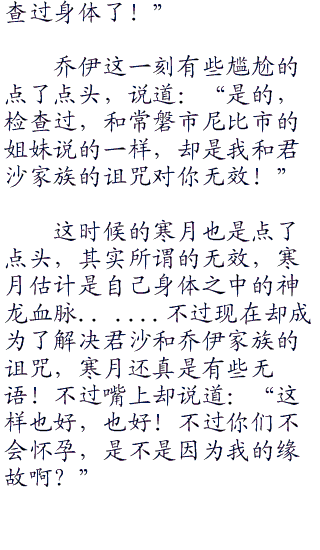 查过身体了！”
乔伊这一刻有些尴尬的
点了点头，说道：“是的，
检查过，和常磐市尼比市的
姐妹说的一样，却是我和君
沙家族的诅咒对你无效！”
这时候的寒月也是点了
点头，其实所谓的无效，寒
月估计是自己身体之中的神
龙血脉.......不过现在却成
为了解决君沙和乔伊家族的
诅咒，寒月还真是有些无
语！不过嘴上却说道：“这
样也好，也好！不过你们不
会怀孕，是不是因为我的缘
故啊？”